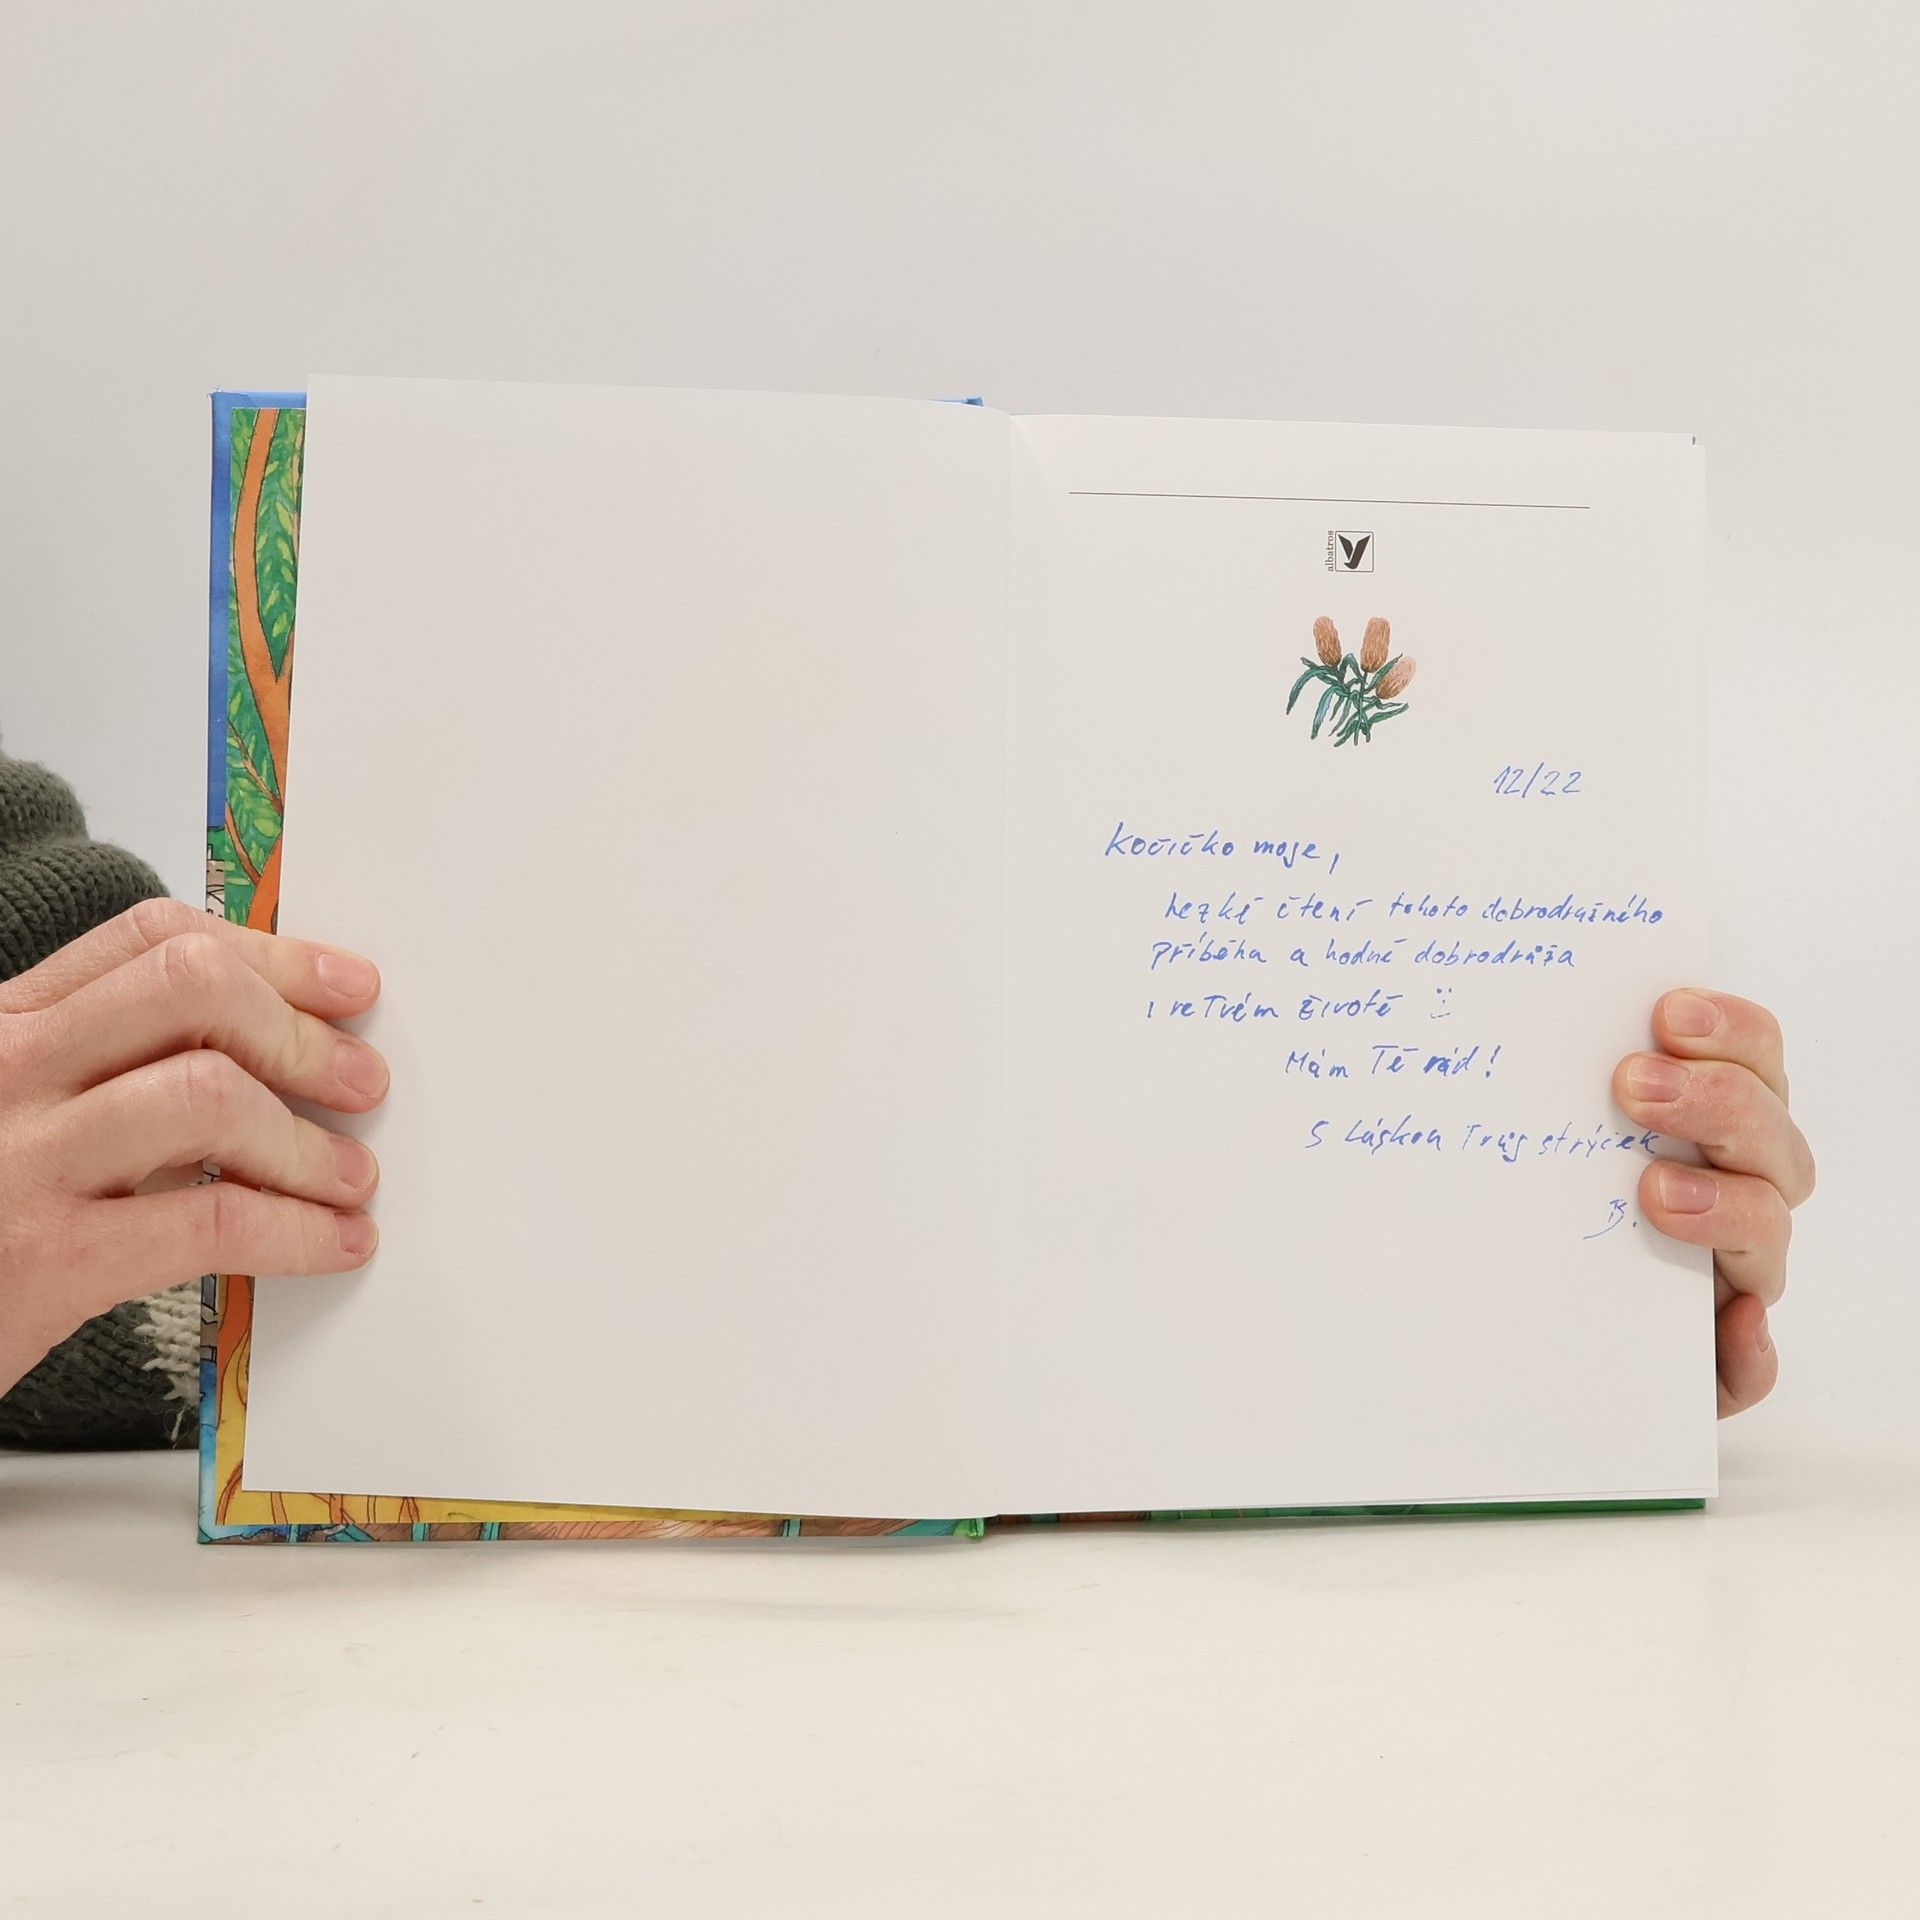 albatros
12/22
Kočičko moje,
hezké čtení tohoto dobrodružného
příběha a hodně dobrodrůža
i ve Tvém životě :)
Mám Tě rád!
S láskou Tvůj strýček
B.